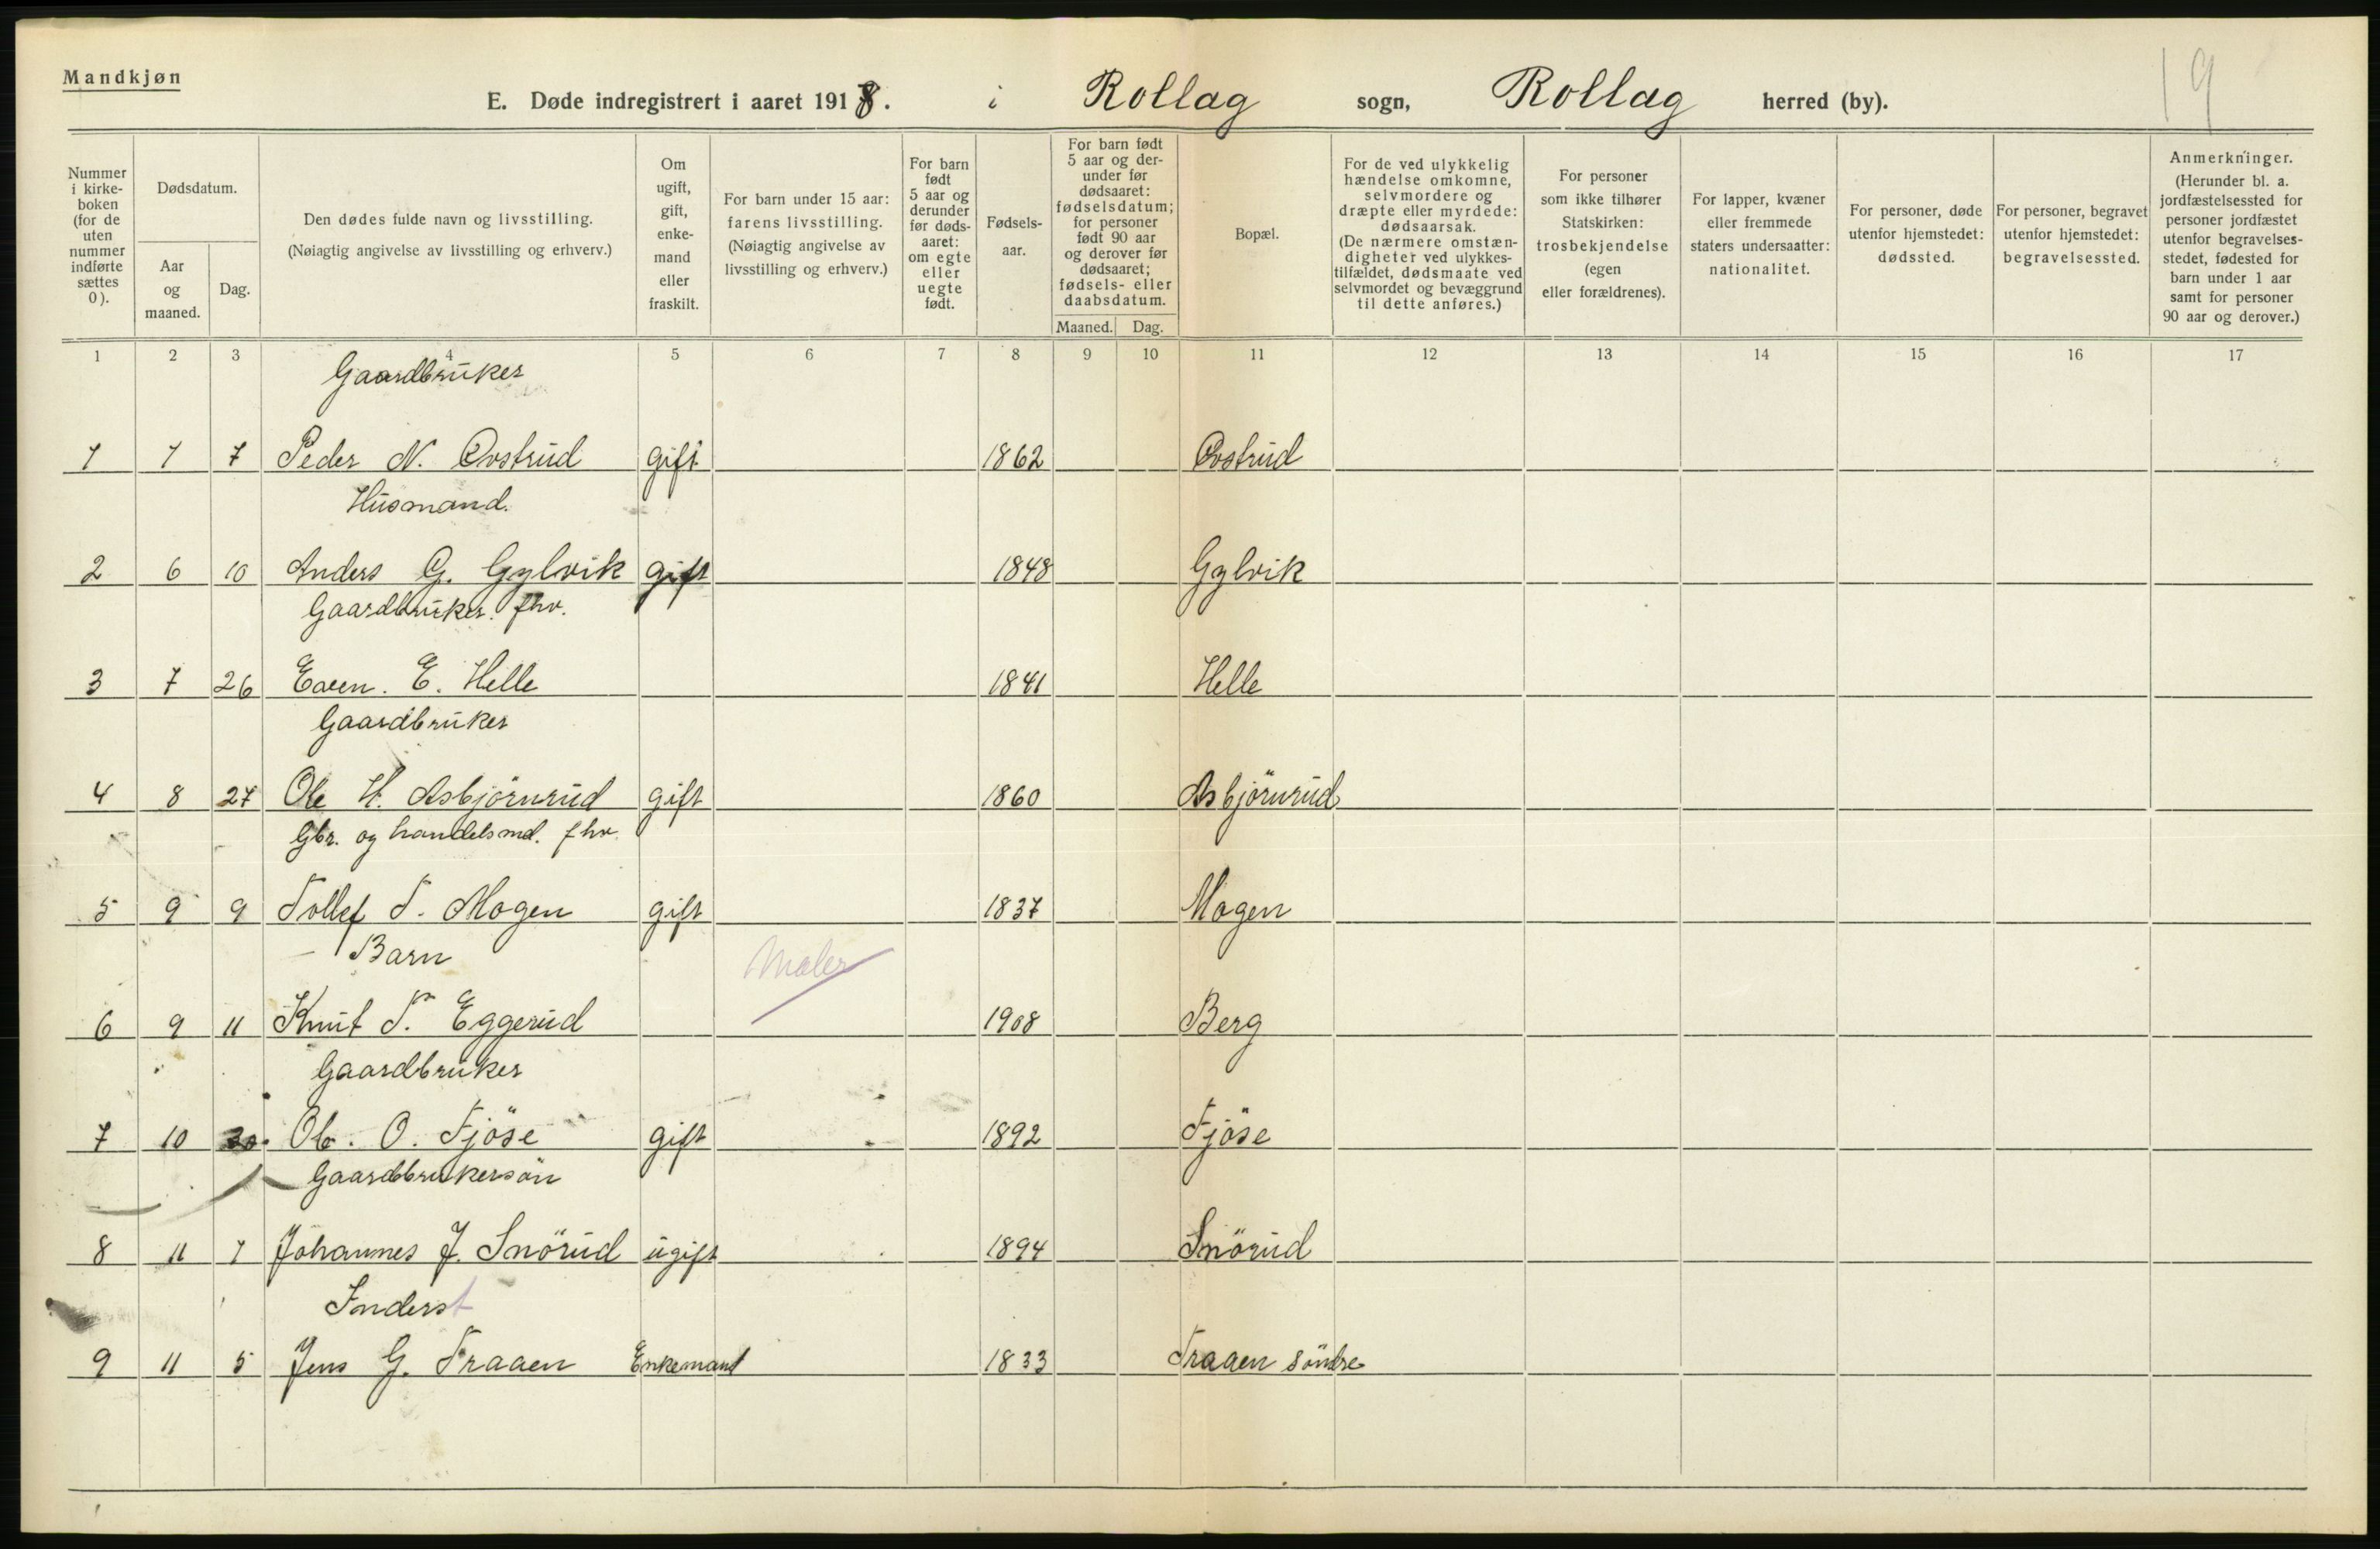 Mandkjøn
19
E. Døde indregistrert i aaret 1918. i Rollag sogn, Rollag herred (by).
Nummer i kirke- boken (for de uten nummer indførte sættes 0).
Dødsdatum.
Aar og maaned.
Dag.
Den dødes fulde navn og livsstilling.
(Nøiagtig angivelse av livsstilling og erhverv.)
Om ugift, gift, enke- mand eller fraskilt.
For barn under 15 aar: farens livsstilling. (Nøiagtig angivelse av livsstilling og erhverv.)
For barn født 5 aar og derunder før døds- aaret: om egte eller uegte født.
Fødsels- aar.
For barn født 5 aar og der- under før dødsaaret: fødselsdatum; for personer født 90 aar og derover før dødsaaret; fødsels- eller daabsdatum.
Maaned. Dag.
Bopæl.
For de ved ulykkelig hændelse omkomne, selvmordere og dræpte eller myrdede: dødsaarsak. (De nærmere omstæn- digheter ved ulykkes- tilfældet, dødsmaate ved selvmordet og bevæggrund til dette anføres.)
For personer som ikke tilhører Statskirken: trosbekjendelse (egen eller forældrenes).
For lapper, kvæner eller fremmede staters undersaatter: nationalitet.
For personer, døde utenfor hjemstedet: dødssted.
For personer, begravet utenfor hjemstedet: begravelsessted.
Anmerkninger. (Herunder bl. a. jordfæstelsessted for personer jordfæstet utenfor begravelses- stedet, fødested for barn under 1 aar samt for personer 90 aar og derover.)
1 2 3 4 5 6 7 8 9 10 11 12 13 14 15 16 17
Gaardbruker
1 1 7 Peder N. Ovstrud gift 1862 Ovstrud
Husmand.
2 6 10 Anders G. Gylvik gift 1848 Gylvik
Gaardbruker. fhv.
3 7 26 Even. E. Helle 1841 Helle
Gaardbruker
4 8 27 Ole H. Asbjörnrud gift 1860 Asbjörnrud
Gbr. og handelsmd. fhv.
5 9 9 Tollef T. Mogen gift 1837 Mogen
Barn Maler
6 9 11 Knut T. Eggerud 1908 Berg
Gaardbruker
7 10 Ole. O. Fjöse gift 1892 Fjöse
Gaardbrukersön
8 11 1 Johannes J. Snörud ugift 1894 Snörud
Inderst
9 11 5 Jens G. Traaen Enkemand 1833 Traaen söndre